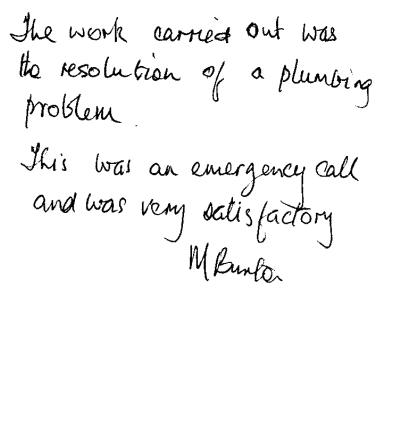 The work carried out was
the resolution of a plumbing
problem.
This was an emergency call
and was very satisfactory
M